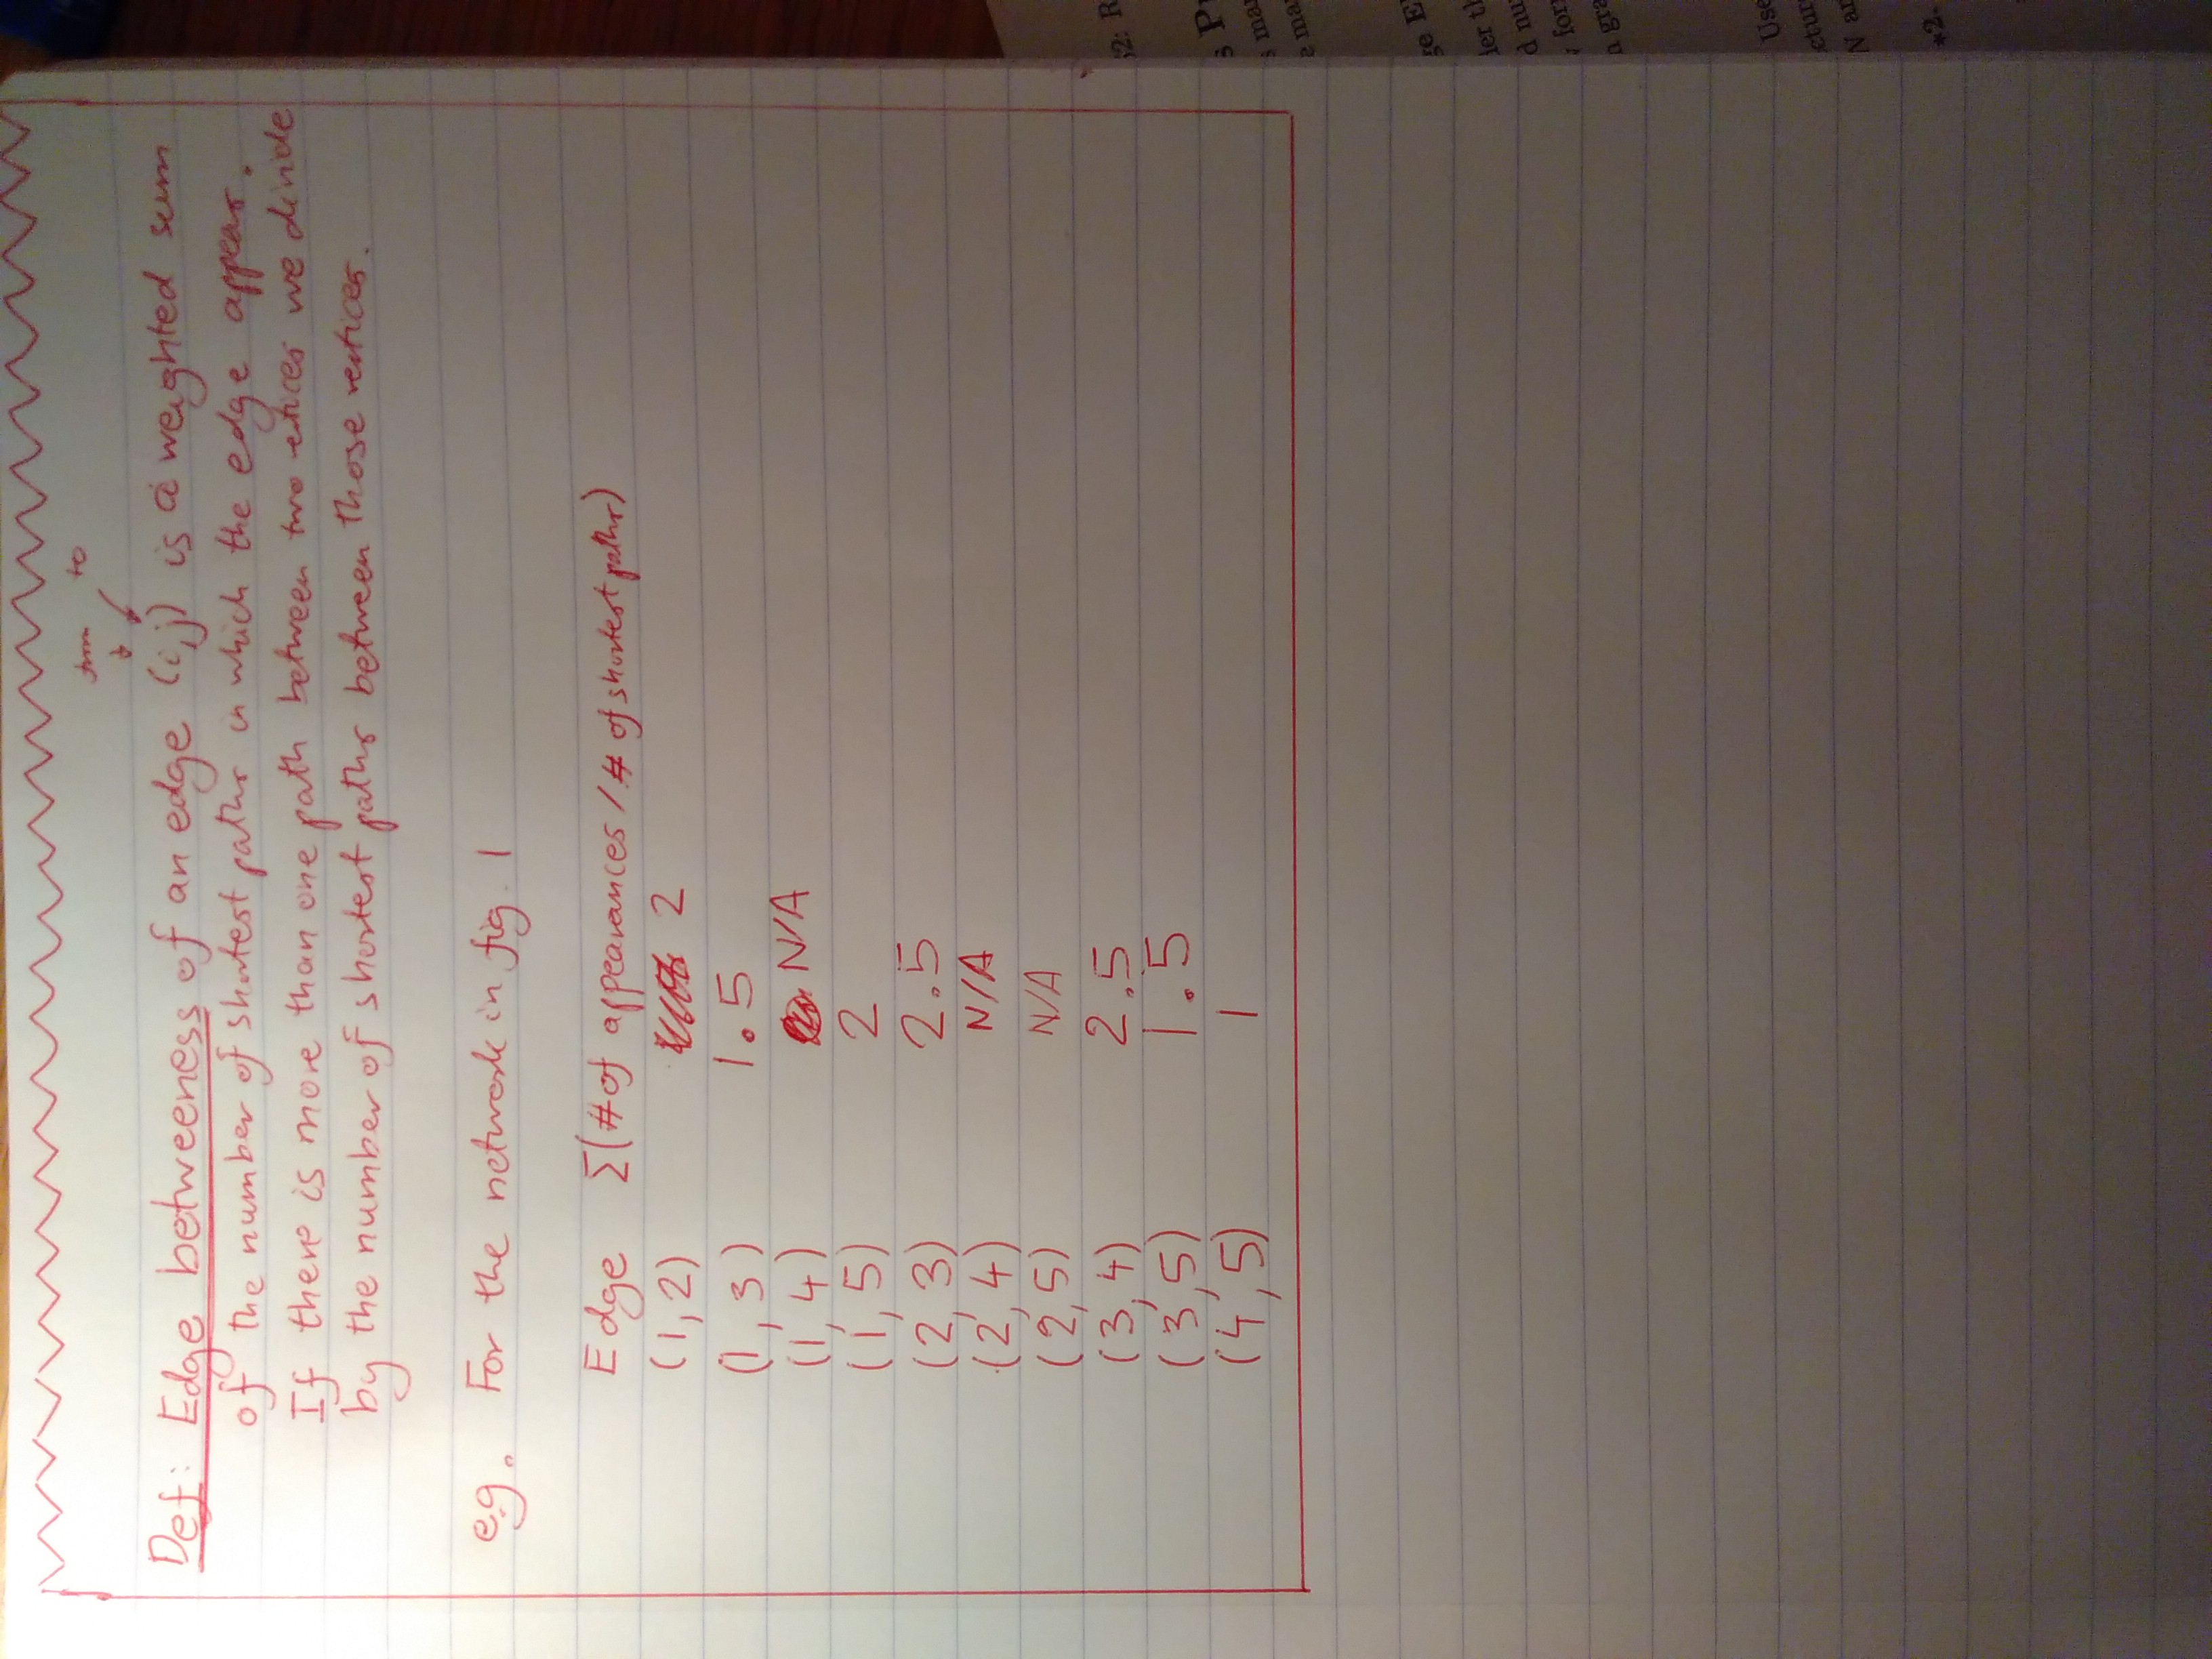 from to
Def: Edge betweeness of an edge (i,j) is a weighted sum
of the number of shortest paths in which the edge appears.
If there is more than one path between two vertices we divide
by the number of shortest paths between those vertices.
e.g. For the network in fig. 1
Edge Σ(# of appearances / # of shortest paths)
(1,2) 2
(1,3) 1.5
(1,4) N/A
(1,5) 2
(2,3) 2.5
(2,4) N/A
(2,5) N/A
(3,4) 2.5
(3,5) 1.5
(4,5) 1
2: R
s P
s ma
e ma
ge E
der th
d nu
for
n gra
Use
ctur
N a
*2.